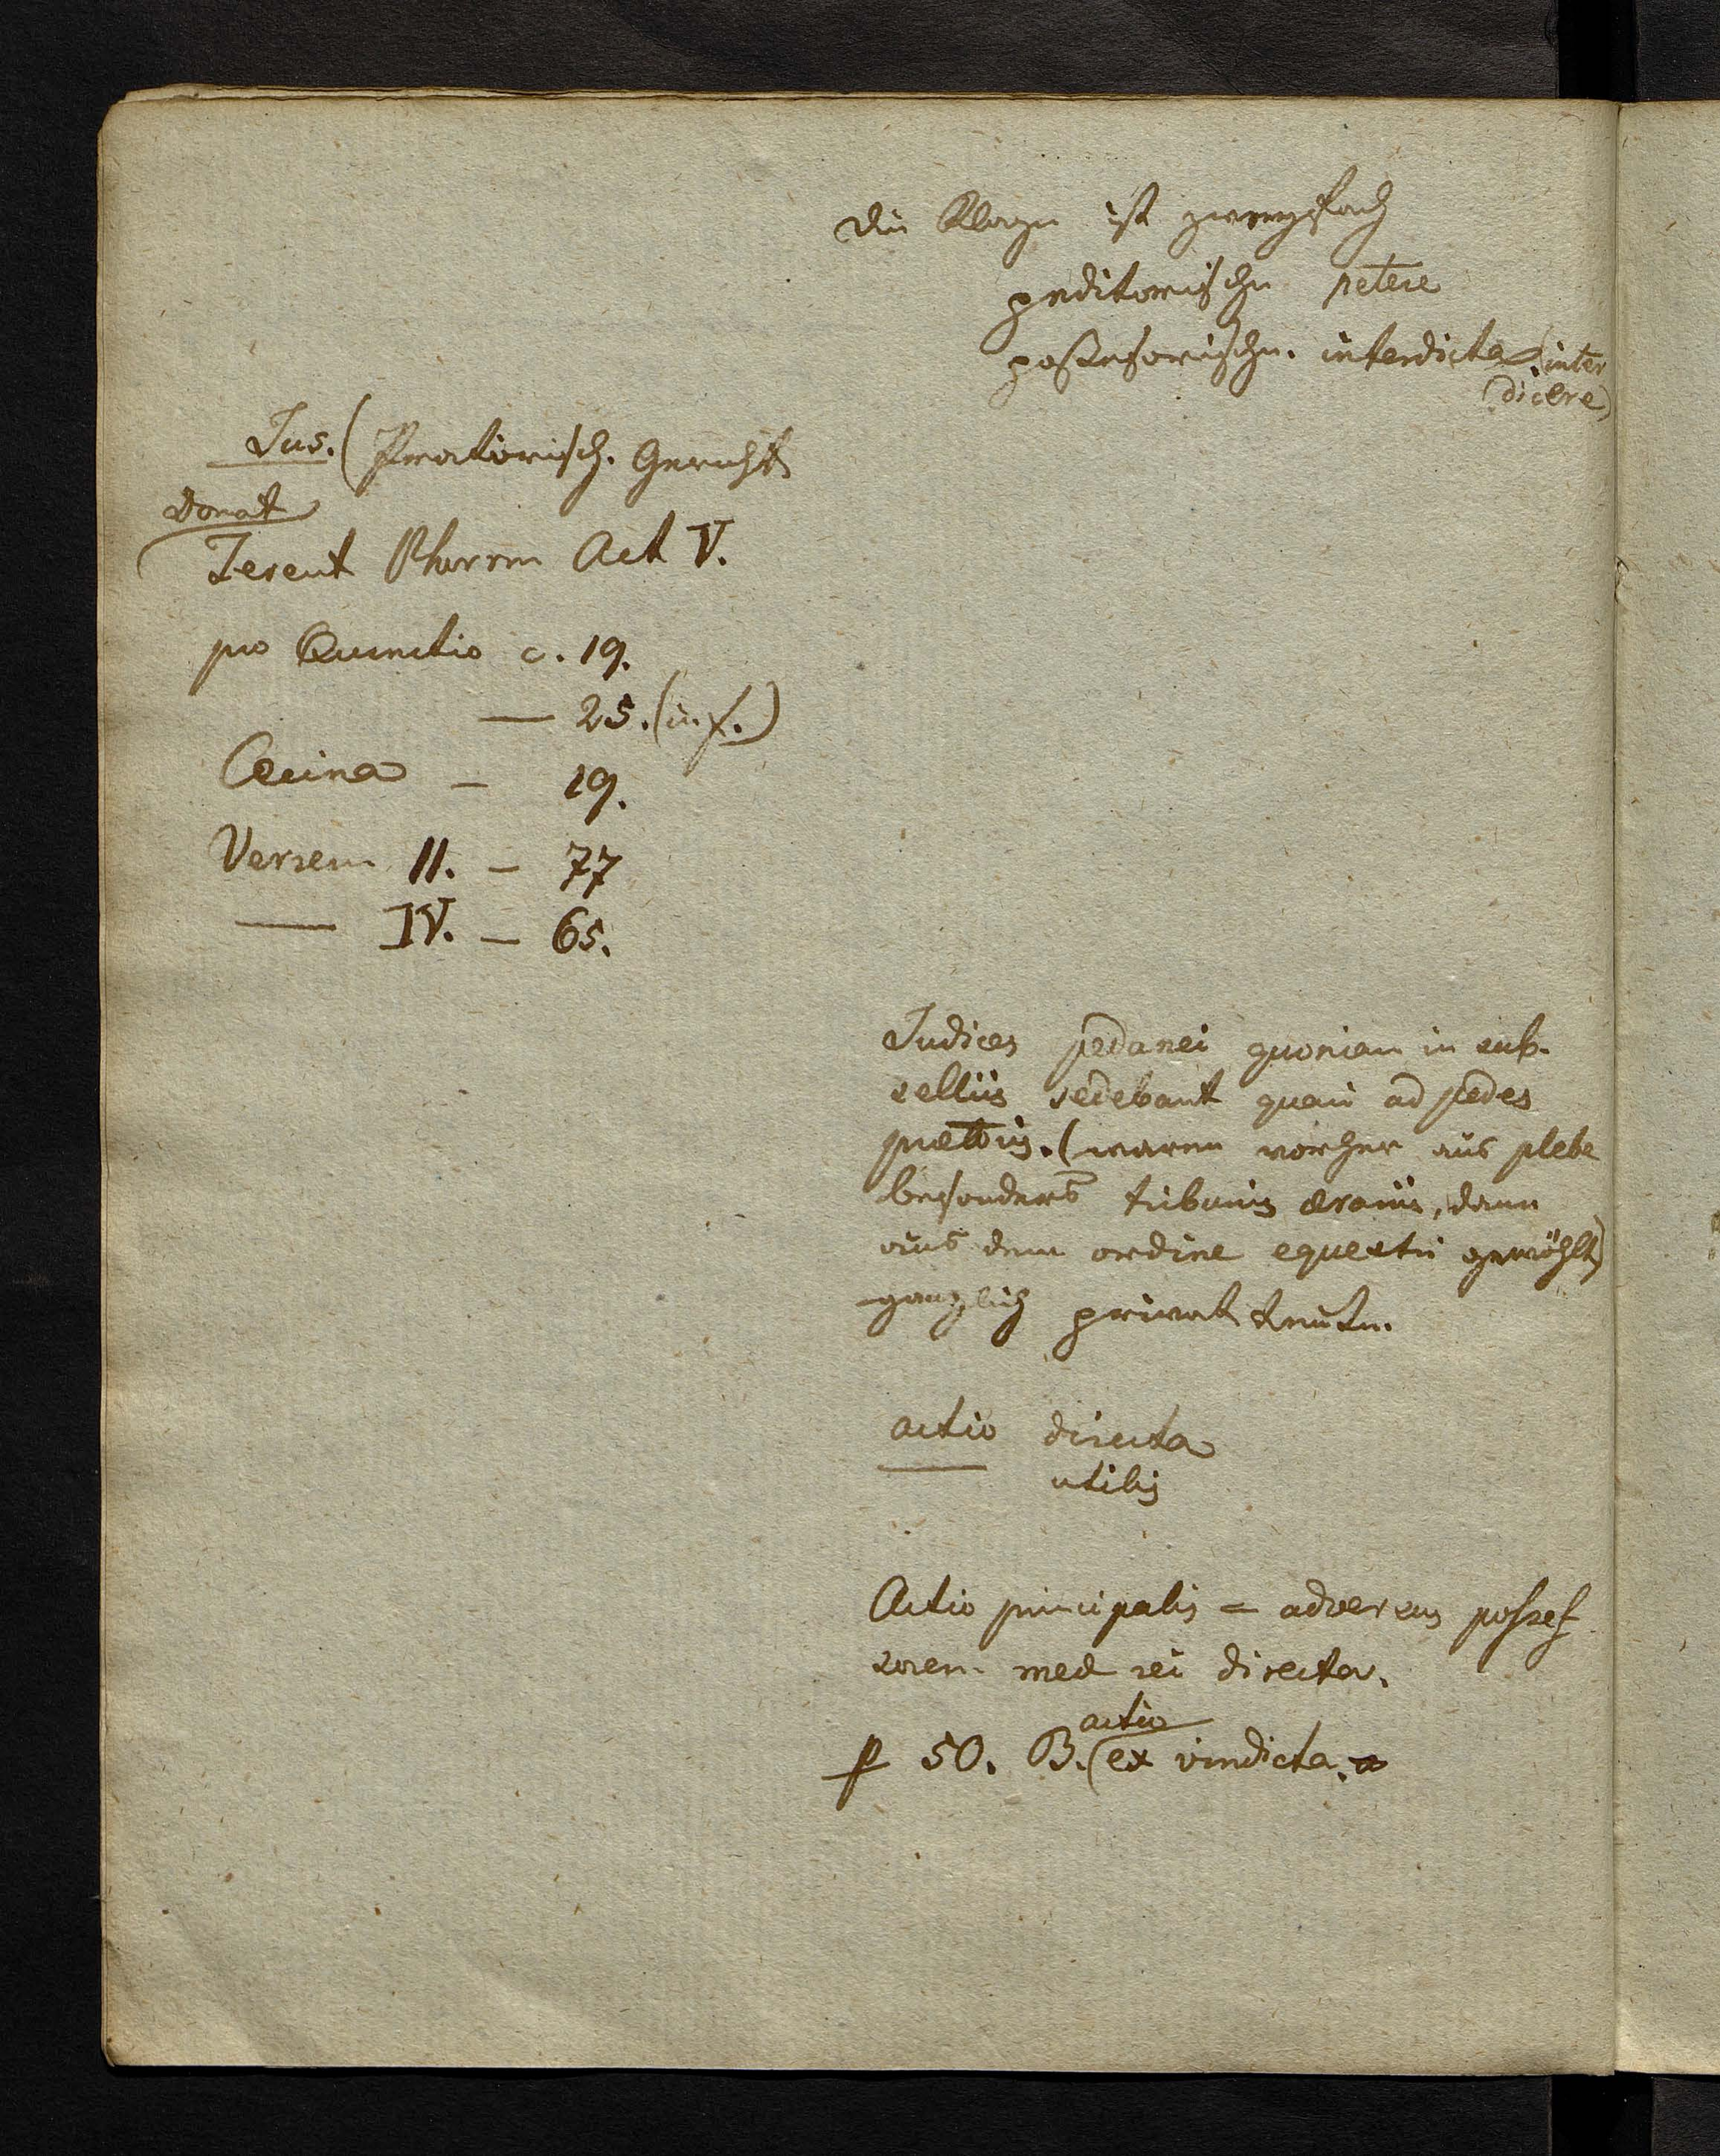 Die Klage ist zweyfach
peditorische petere
possessorische. interdicta (inter
dicere)
Jus. (Praetorisch. Gericht
Donat
Terent Phorm Act V.
pro Quinctio c. 19.
— 25. (in f.)
Cecina — 19.
Verrem II. — 77
— IV. — 65.
Judices pedanei quoniam in sub-
selliis sedebant quasi ad pedes
praetoris. (waren vorher aus plebe
besonders tribunis aerariis, dann
aus dem ordine equestri gewählt)
gänzlich privat Leute.
actio directa
— utilis
Actio principalis = adversus posses
sorem meae rei directa.
actio
p 50. B. (ex vindicta.